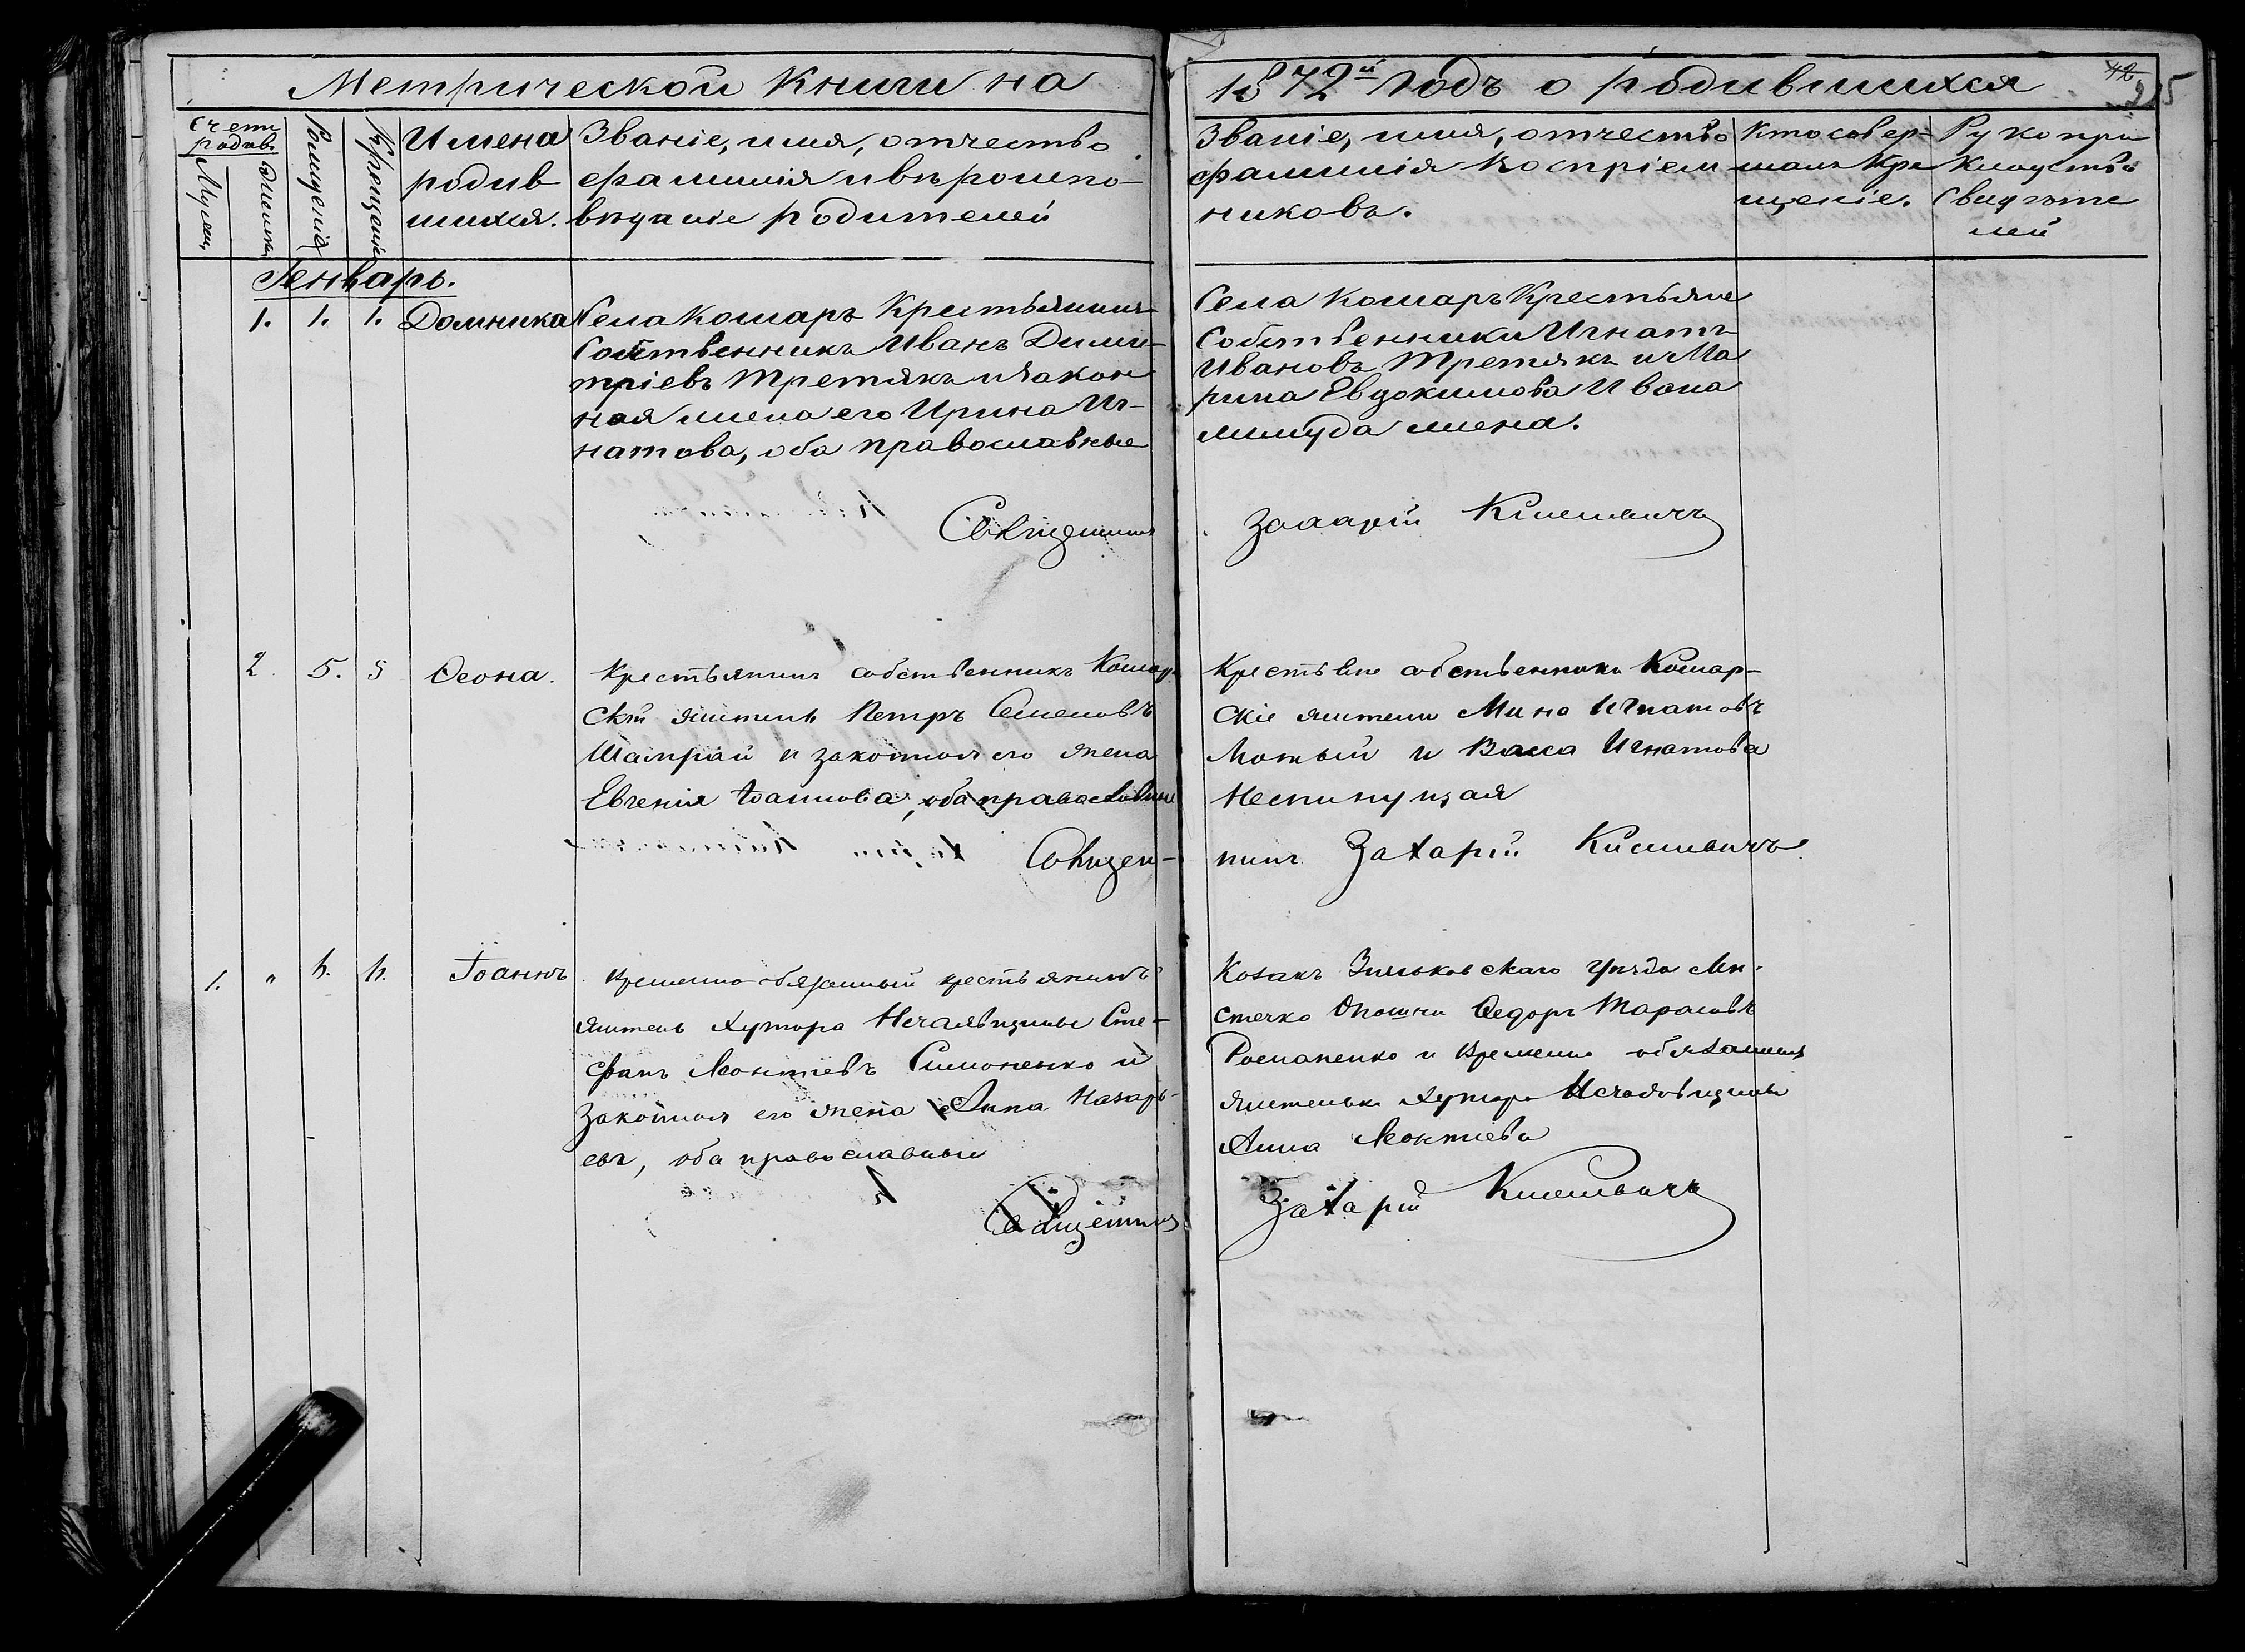 Метрической Книги на
1872й Годъ о родившихся
42
Счетъ родив.
Мужеск.
Женска
Рожденія
Крещенія
Имена
родив
шихся.
Званіе, имя, отчество
фамилія и вѣроиспо-
вѣданіе родителей
Званіе, имя, отчество
фамилія воспріем
никовъ.
Кто совер-
шалъ Кре
щеніе.
Рукопри
кладство
Свидѣте
лей
Генварь.
1. 1. 1. Домника
Села Комаръ Крестьянинъ
Собственникъ Иванъ Дими-
тріевъ Третякъ и закон
ная жена его Ирина Иг-
натова, оба православные
Села Комаръ Крестьяне
Собственники Игнатъ
Ивановъ Третякъ и Ма
рина Евдокимова Ивана
жена.
Священникъ
Захарій
2. 5. 5 Ѳеона.
Крестьянинъ собственникъ Комар-
скій житель Петръ Семеновъ
Шамрай и законная его жена
Евгенія Іоаннова, оба православные
Крестьяне собственники Комар-
скіе жители Мина Игнатовъ
и Васса Игнатова
Священ-
никъ Захарій
1. " 6. 6. Іоаннъ
Временно-обязанный крестьянинъ
житель Хутора Сте-
фанъ Леонтіевъ Симоненко и
законная его жена Анна Назарь-
ева, оба православные
Козакъ Зиньковскаго Уѣзда Мѣ-
стечка Опошни Ѳедоръ Тарасовъ
Романенко и временно обязанная
жителька Хутора
Анна Леонтіева
Священникъ
Захарій